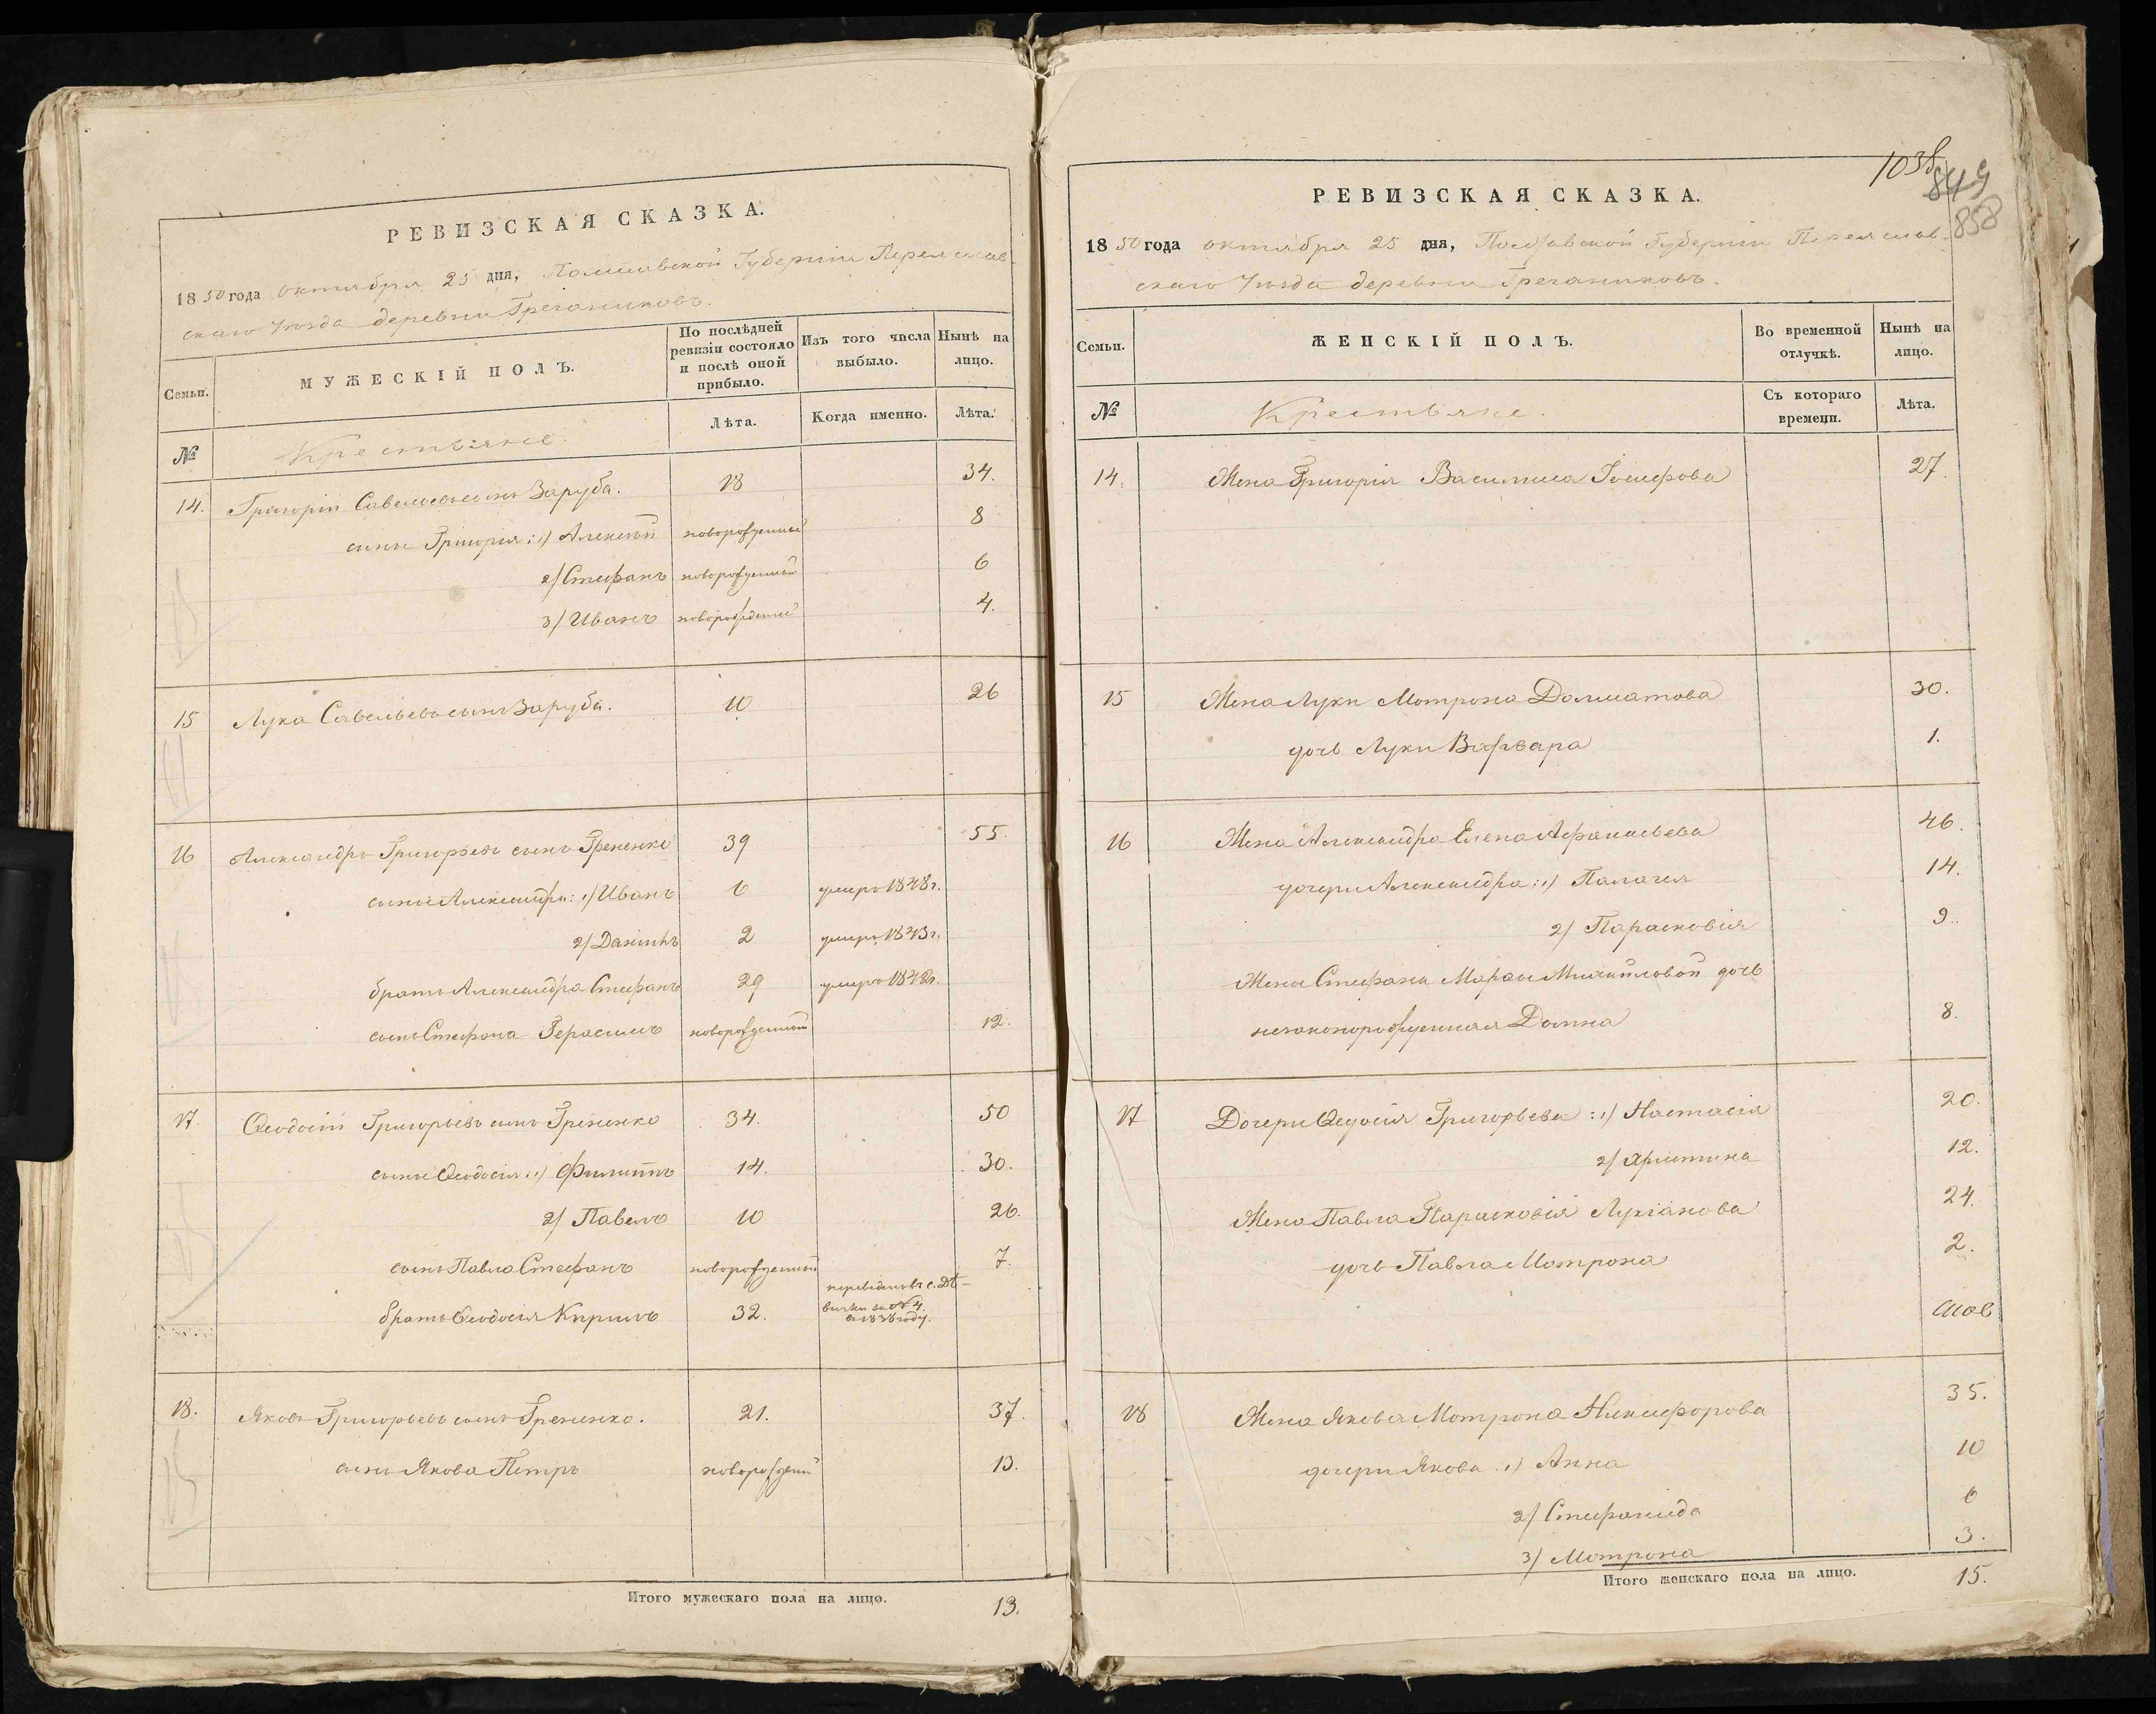 РЕВИЗСКАЯ СКАЗКА.
1850 года октября 25 дня, Полтавской Губерніи Переяслав-
скаго Уѣзда деревни Гречаниковъ.
Семьи.
МУЖЕСКІЙ ПОЛЪ.
По послѣдней ревизіи состояло и послѣ оной прибыло.
Изъ того числа выбыло.
Нынѣ на лицо.
№
Крестьяне.
Лѣта.
Когда именно.
Лѣта.
14. Григорій Савельевъ сынъ Заруба. 18 34.
сыны Григорія: 1) Алексѣй новорожденный 8
2) Стефанъ новорожденный 6
3) Иванъ новорожденный 4.
15 Лука Савельевъ сынъ Заруба. 10 26
16 Александръ Григорьевъ сынъ Грененко 39 55.
сыны Александра: 1) Иванъ 6 умеръ 1848 г.
2) Даніилъ 2 умеръ 1843 г.
братъ Александра Стефанъ 29 умеръ
сынъ Стефана Герасимъ новорожденный 12.
17. Ѳеодосій Григорьевъ сынъ Грененко 34. 50
сыны Ѳеодосія: 1) Филиппъ 14. 30.
2) Павелъ 10 26.
сынъ Павла Стефанъ новорожденный 7.
братъ Ѳеодосія Кирилъ 32. переведенъ въ с. Дѣ-
вички за № 4.
въ 1836 году.
18. Яковъ Григорьевъ сынъ Грененко. 21. 37.
сынъ Якова Петръ новорожденный 13.
Итого мужескаго пола на лицо. 13.
1038
849
858
РЕВИЗСКАЯ СКАЗКА.
1850 года октября 25 дня, Полтавской Губерніи Переяслав-
скаго Уѣзда деревни Гречаниковъ.
Семьи.
ЖЕНСКІЙ ПОЛЪ.
Во временной отлучкѣ.
Нынѣ на лицо.
№
Крестьяне.
Съ котораго времени.
Лѣта.
14. Жена Григорія Василиса Іосифова 27.
15 Жена Луки Мотрона Далматова 30.
дочь Луки Варвара 1.
16 Жена Александра Елена Афанасьева 46.
дочери Александра: 1) Палагея 14.
2) Парасковія 9.
Жены Стефана Марѳы Михайловой дочь
незаконорожденная Домна 8.
17 Дочери Ѳедосія Григорьева: 1) Настасія 20.
2) Христина 12.
Жена Павла Парасковія Лукіанова 24.
дочь Павла Мотрона 2.
18 Жена Якова Мотрона Никифорова 35.
дочери Якова: 1) Анна 10
2) Стефанида 6
3) Мотрона 3.
Итого женскаго пола на лицо. 15.